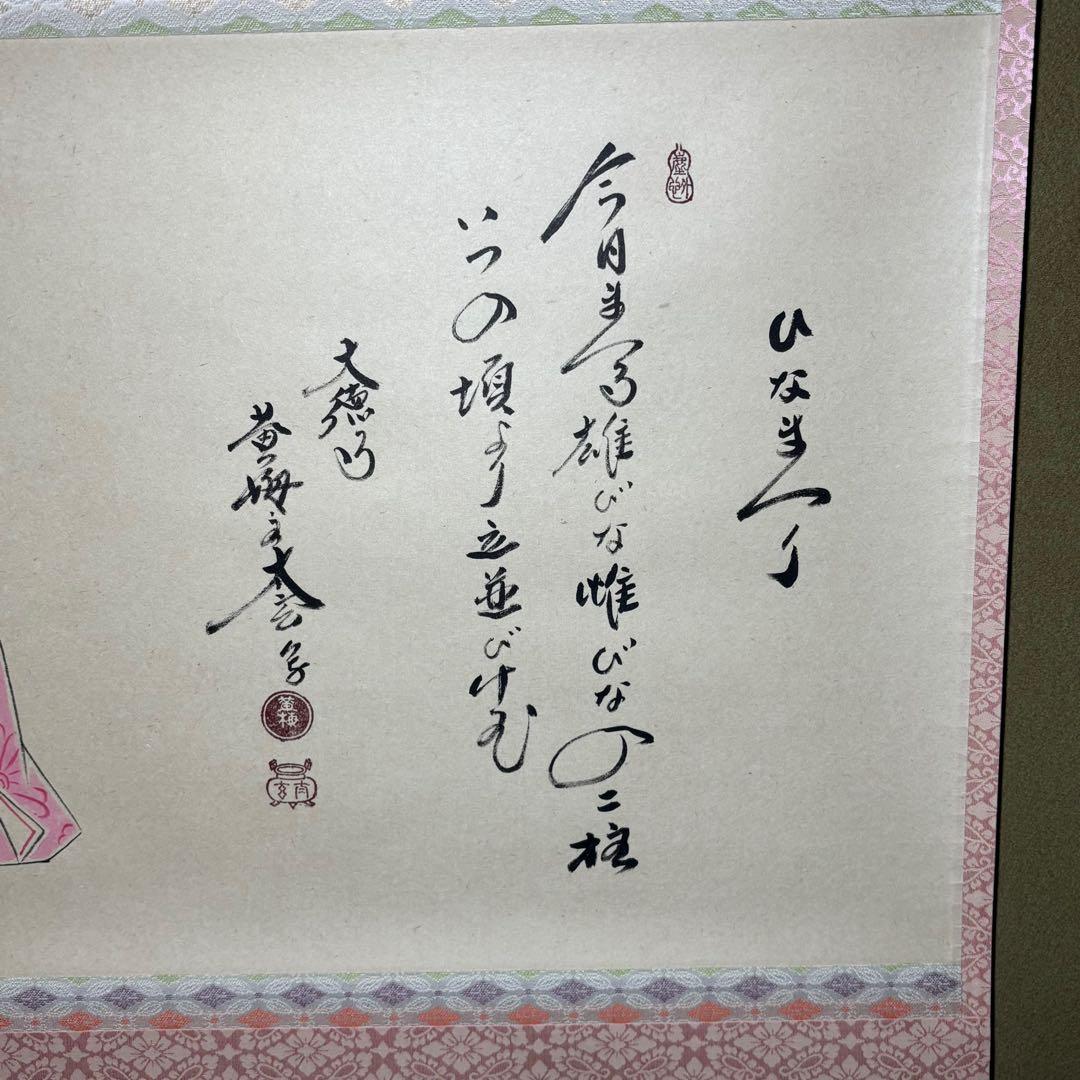 ひなまつり
今日まつる雄びな雌びなの二柱
いつの頃より立並びけむ
大徳寺
黄梅主太玄
黄梅